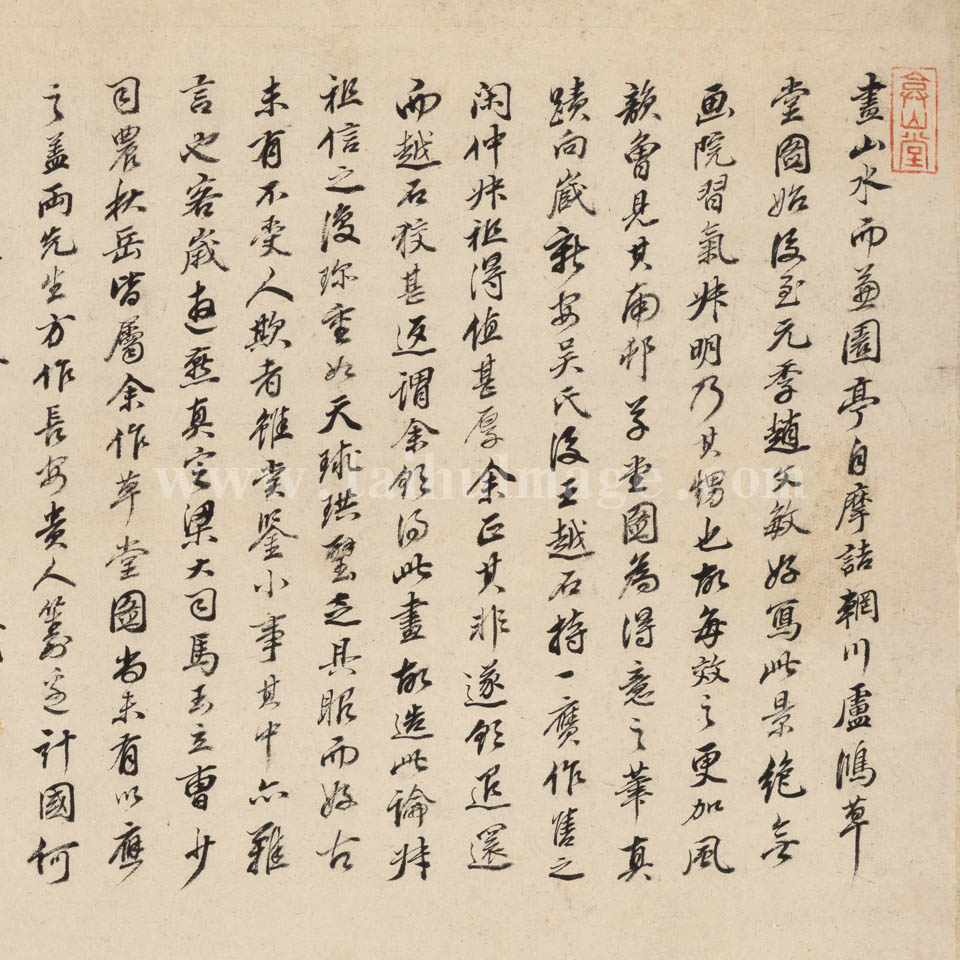 畫山水而兼園亭自摩詰輞川盧鴻草
堂圖始後至元季趙文敏好寫此景絶無
画院習氣叔明乃其甥也故每效之更加風
韻曾見其南邨草堂圖為得意之筆真
蹟向嵗新安吴氏後王越石持一贗作售之
閑仲叔祖得值甚厚余正其非遂欲退還
而越石狡甚返謂余欲得此畫故造此論叔
祖信之復珎重如天球珙璧之具眼而好古
未有不受人欺者雖賞鑒小事其中亦難
言也客嵗真定梁大司馬玉立曹少
司農秋岳皆屬余作草堂圖尚未有以應
之盖两先生方作長安貴人籌邊計國何
www.taihuimage.com